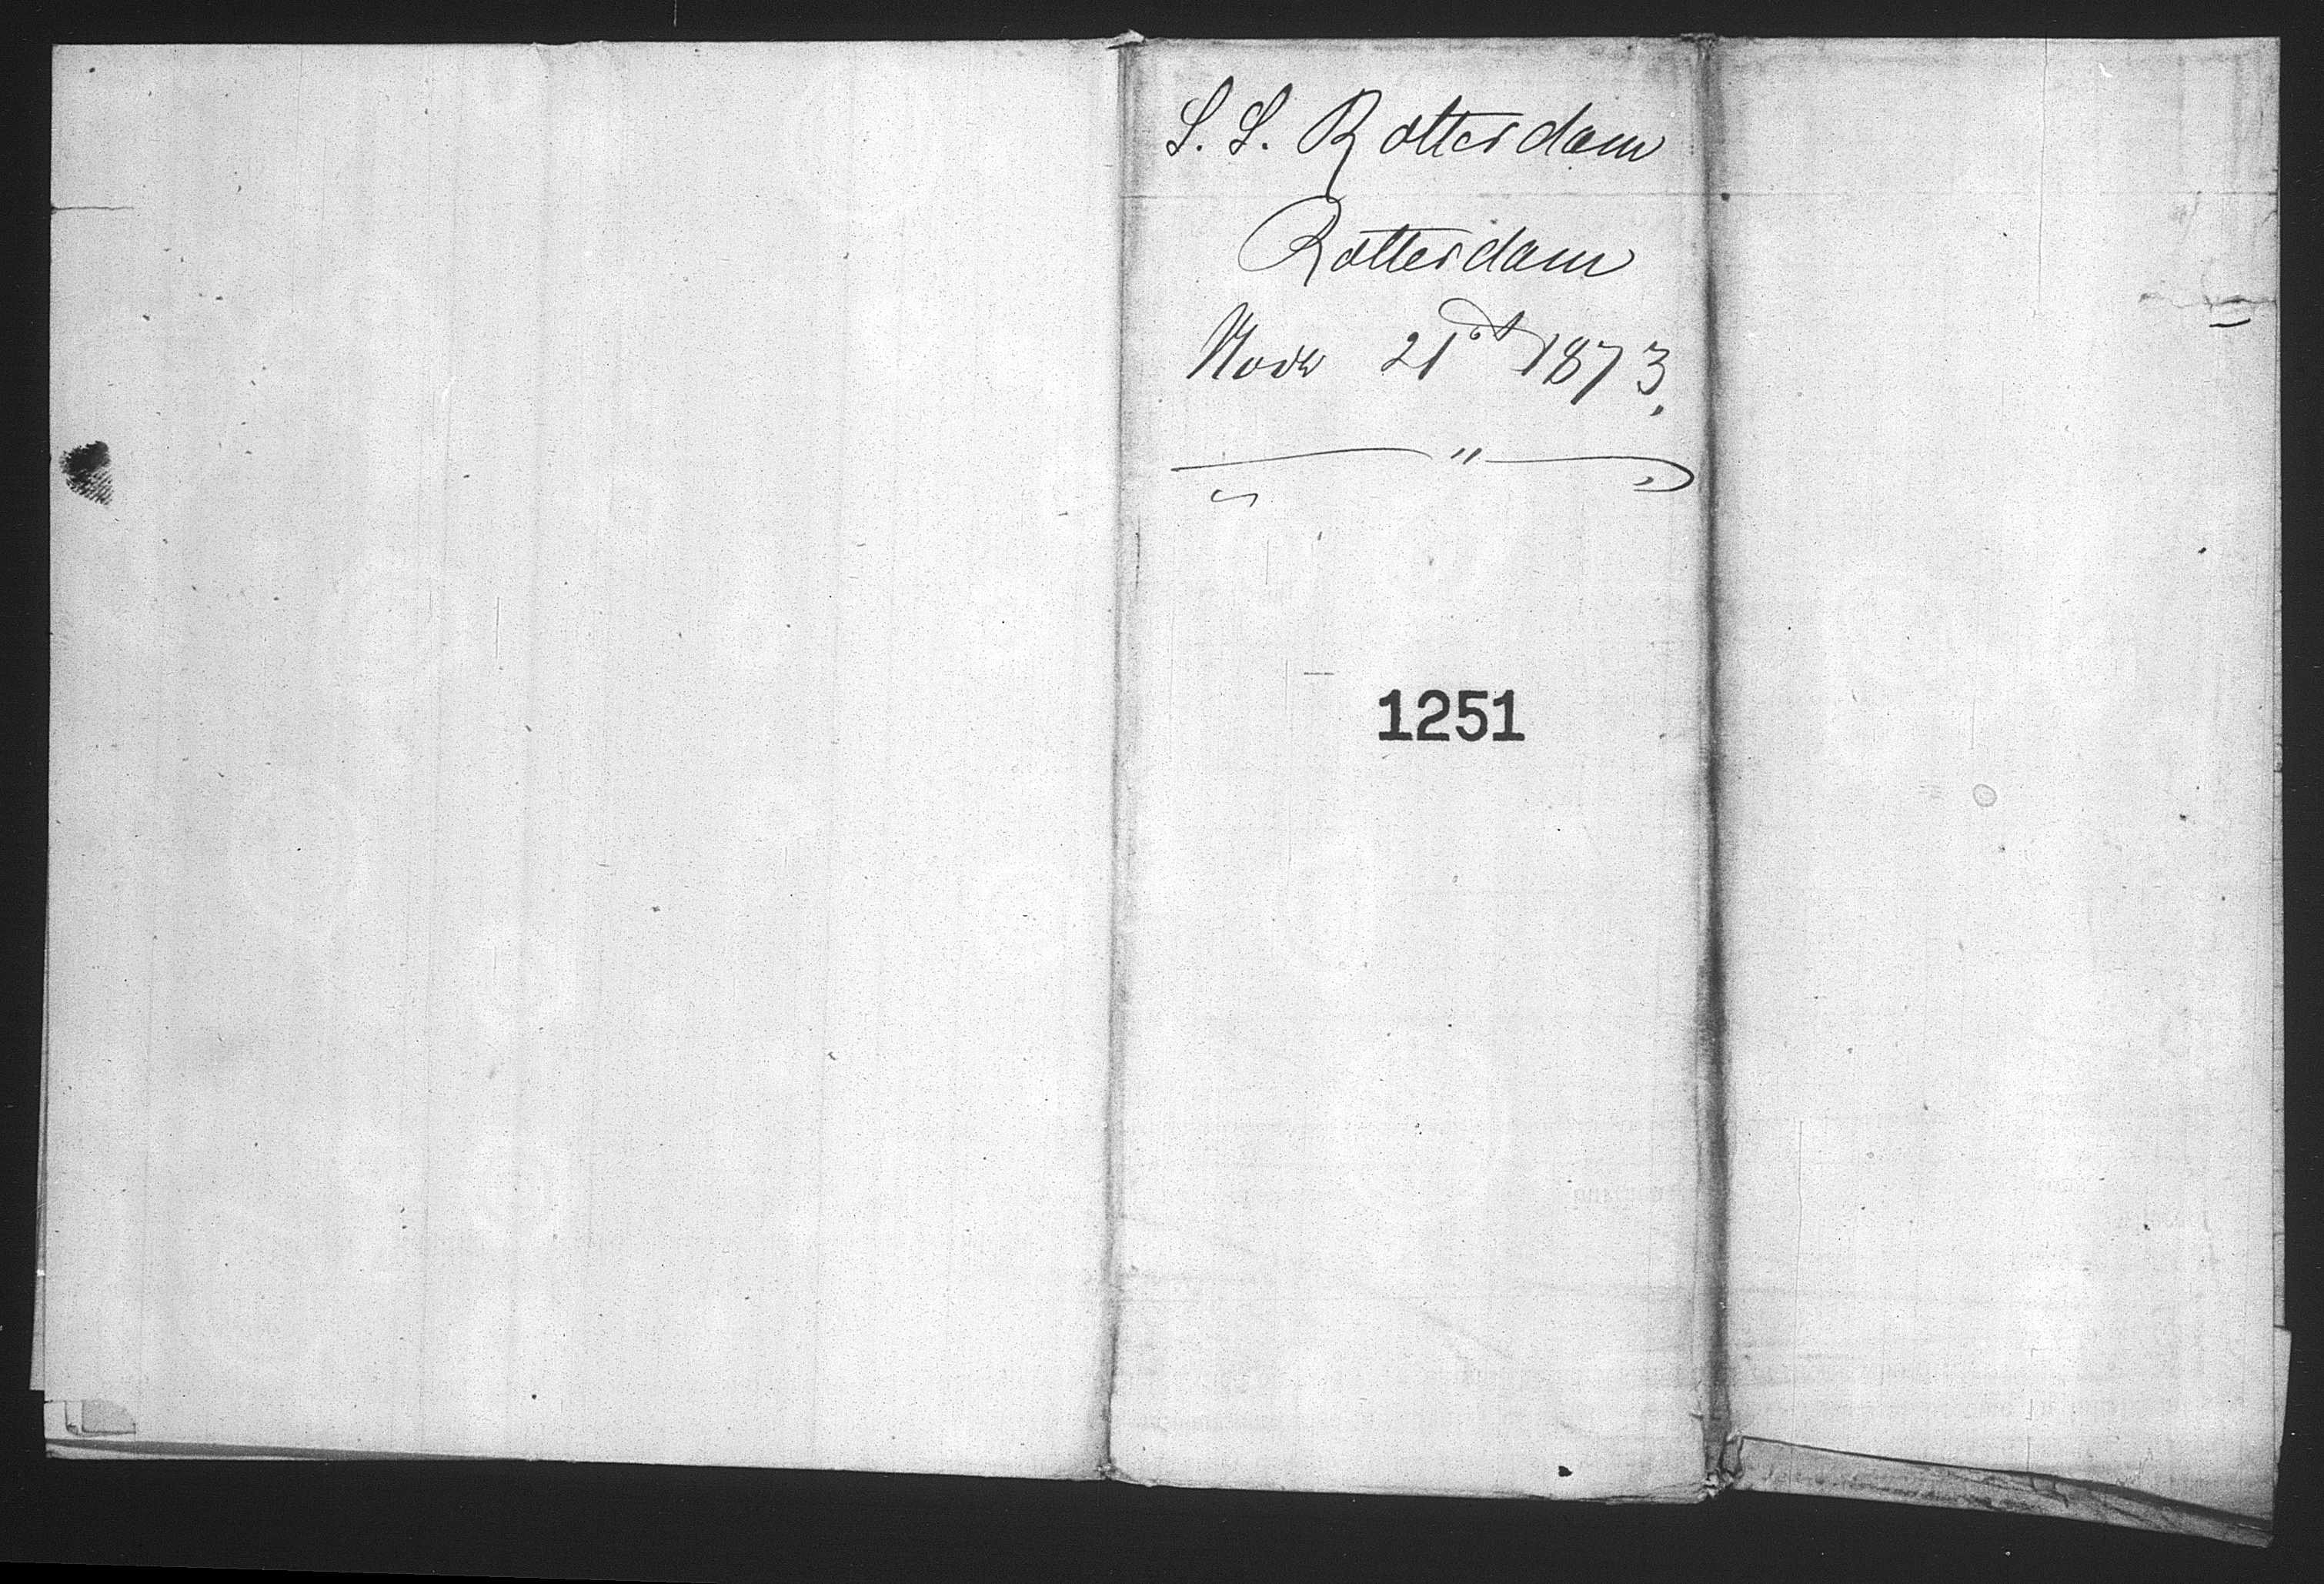 S. S. Rotterdam
Rotterdam
Novr 21st 1873.
1251